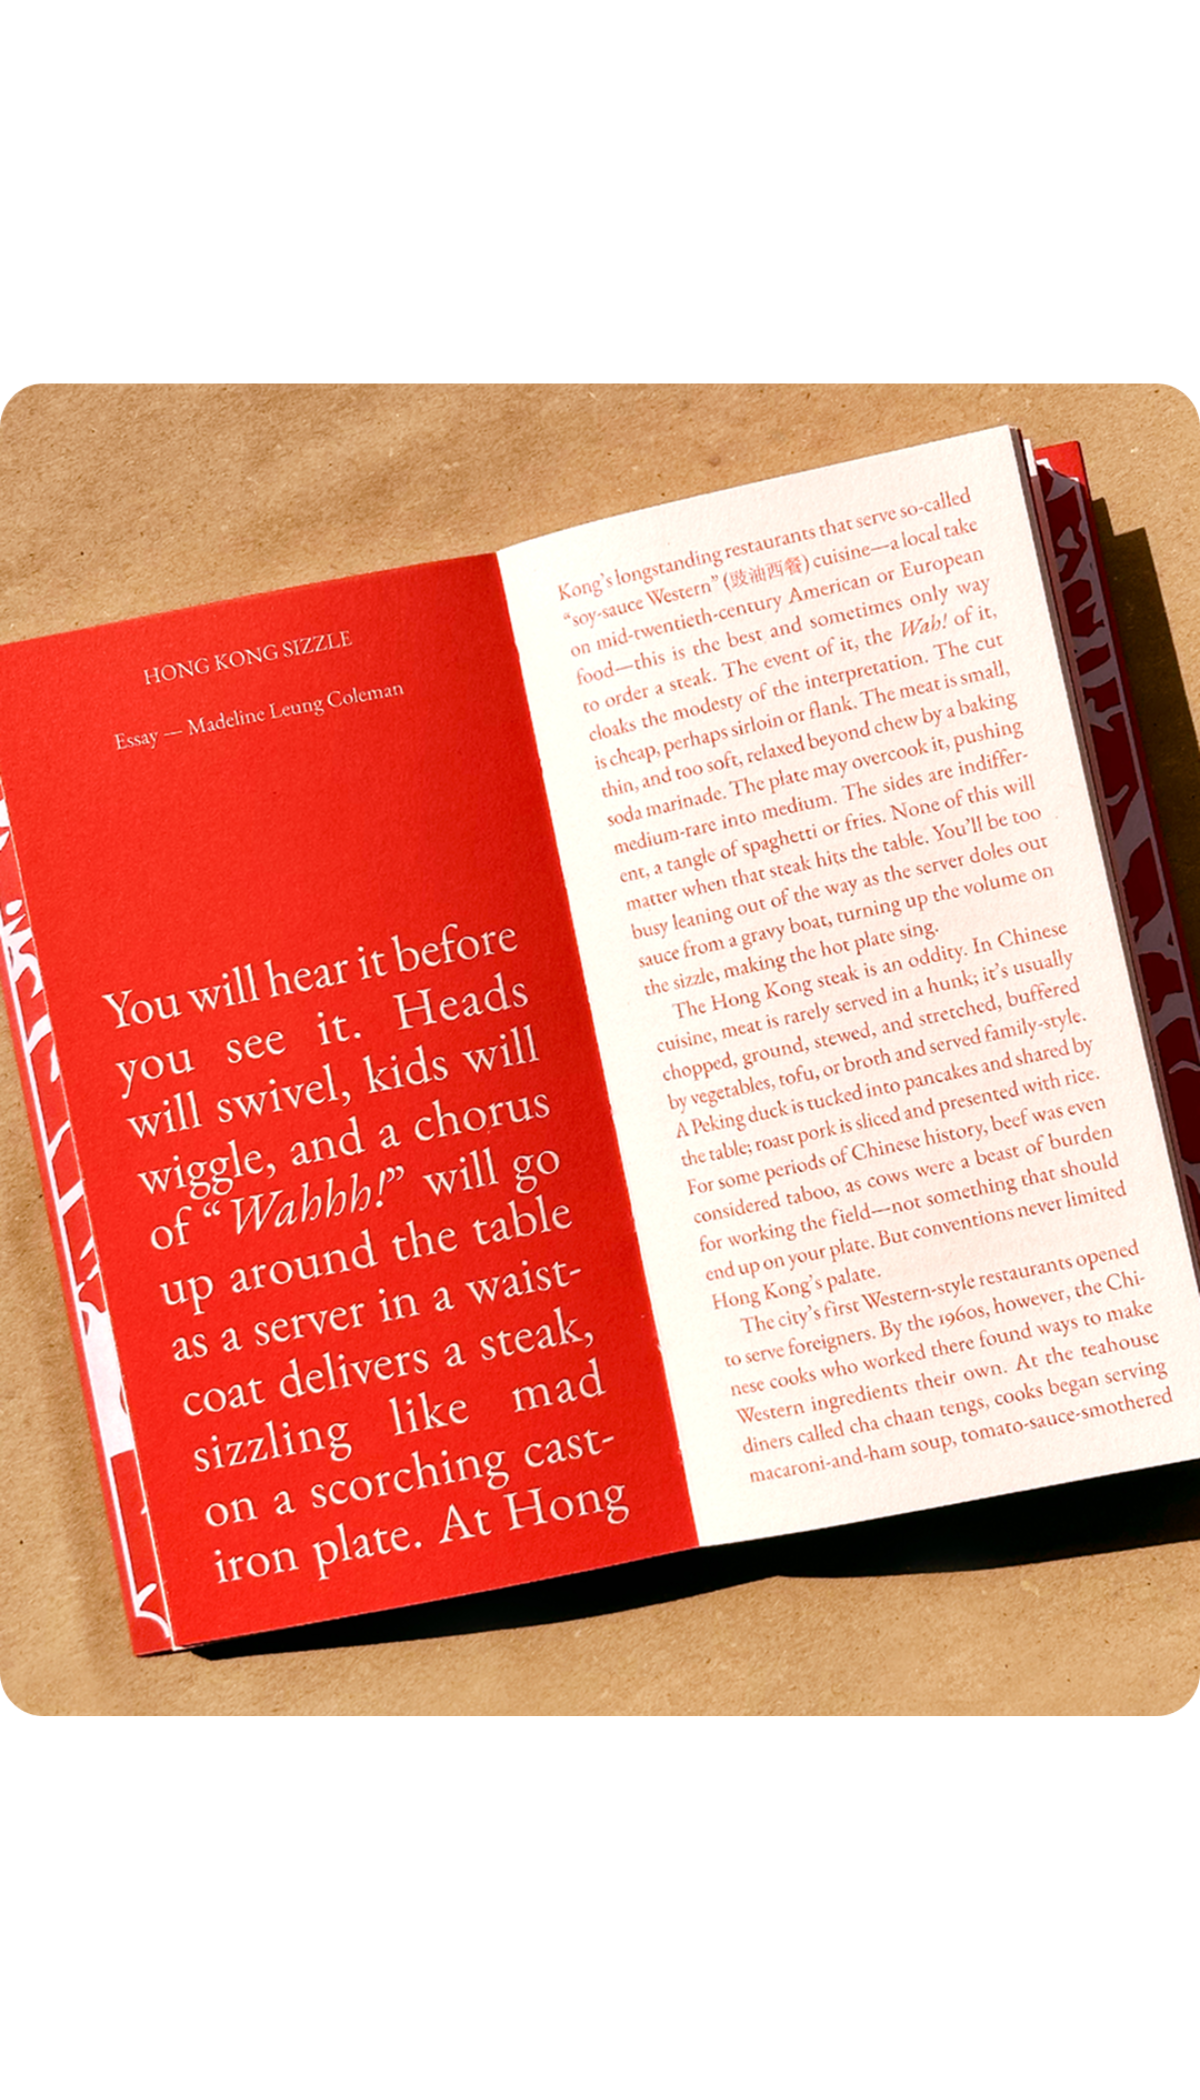 HONG KONG SIZZLE
Essay — Madeline Leung Coleman
You will hear it before
you see it. Heads
will swivel, kids will
wiggle, and a chorus
of “Wahhh!” will go
up around the table
as a server in a waist-
coat delivers a steak,
sizzling like mad
on a scorching cast-
iron plate. At Hong
Kong’s longstanding restaurants that serve so-called
“soy-sauce Western” (豉油西餐) cuisine—a local take
on mid-twentieth-century American or European
food—this is the best and sometimes only way
to order a steak. The event of it, the Wah! of it,
cloaks the modesty of the interpretation. The cut
is cheap, perhaps sirloin or flank. The meat is small,
thin, and too soft, relaxed beyond chew by a baking
soda marinade. The plate may overcook it, pushing
medium-rare into medium. The sides are indiffer-
ent, a tangle of spaghetti or fries. None of this will
matter when that steak hits the table. You’ll be too
busy leaning out of the way as the server doles out
sauce from a gravy boat, turning up the volume on
the sizzle, making the hot plate sing.
The Hong Kong steak is an oddity. In Chinese
cuisine, meat is rarely served in a hunk; it’s usually
chopped, ground, stewed, and stretched, buffered
by vegetables, tofu, or broth and served family-style.
A Peking duck is tucked into pancakes and shared by
the table; roast pork is sliced and presented with rice.
For some periods of Chinese history, beef was even
considered taboo, as cows were a beast of burden
for working the field—not something that should
end up on your plate. But conventions never limited
Hong Kong’s palate.
The city’s first Western-style restaurants opened
to serve foreigners. By the 1960s, however, the Chi-
nese cooks who worked there found ways to make
Western ingredients their own. At the teahouse
diners called cha chaan tengs, cooks began serving
macaroni-and-ham soup, tomato-sauce-smothered